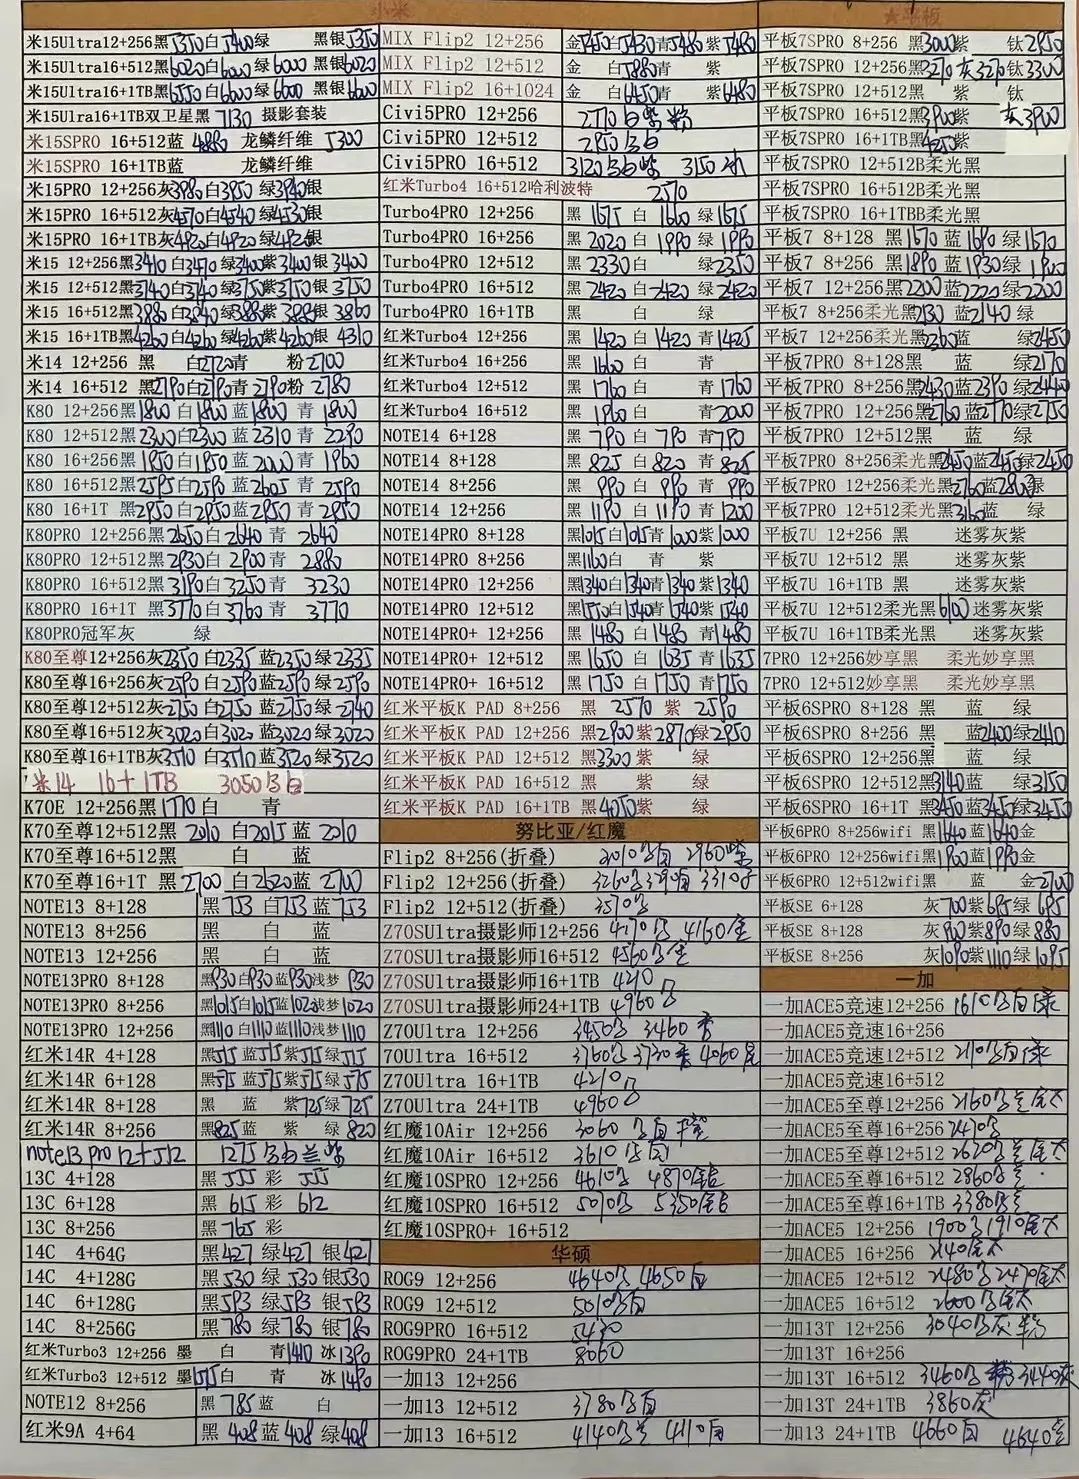 小米
米15Ultra12+256黑5350白5400绿 黑银5350
米15Ultra16+512黑6020白6000绿6000黑银6020
米15Ultra16+1TB黑6550白6600绿6600黑银6600
米15Ulra16+1TB双卫星黑 7130 摄影套装
米15SPRO 16+512蓝 4880 龙鳞纤维 5300
米15SPRO 16+1TB蓝 龙鳞纤维
米15PRO 12+256灰3980白3950绿3940银
米15PRO 16+512灰4570白4540绿4530银
米15PRO 16+1TB灰4920白4920绿4920银
米15 12+256黑3410白3470绿3400紫3400银3400
米15 12+512黑3740白3740绿3750紫3750银3750
米15 16+512黑3880白3840绿3880紫3880银3860
米15 16+1TB黑4260白4260绿4260紫4260银4310
米14 12+256 黑 白2720青 粉2700
米14 16+512 黑2790白2790青2790粉2780
K80 12+256黑1800白1800蓝1800青1800
K80 12+512黑2300白2300蓝2310青2290
K80 16+256黑1950白1950蓝2000青1960
K80 16+512黑2595白2590蓝2605青2590
K80 16+1T黑2950白2950蓝2950青2950
K80PRO 12+256黑2650白2640青2640
K80PRO 12+512黑2930白2900青2880
K80PRO 16+512黑3190白3250青3230
K80PRO 16+1T黑3770白3760青3770
K80PRO冠军灰 绿
K80至尊12+256灰2350白2335蓝2350绿2335
K80至尊16+256灰2590白2590蓝2590绿2590
K80至尊12+512灰2750白2750蓝2750绿2740
K80至尊16+512灰3020白3020蓝3020绿3020
K80至尊16+1TB灰3510白3510蓝3520绿3520
米14 16+1TB 3050黑白
K70E 12+256黑1770白 青
K70至尊12+512黑2010白2015蓝2010
K70至尊16+512黑 白 蓝
K70至尊16+1T黑2700白2620蓝2700
NOTE13 8+128 黑753白753蓝753
NOTE13 8+256 黑 白 蓝
NOTE13 12+256 黑 白 蓝
NOTE13PRO 8+128 黑930白930蓝930浅梦930
NOTE13PRO 8+256 黑1015白1015蓝1020浅梦1020
NOTE13PRO 12+256 黑1110白1110蓝1110浅梦1110
红米14R 4+128 黑515蓝515紫515绿515
红米14R 6+128 黑575蓝575紫575绿575
红米14R 8+128 黑 蓝 紫725绿725
红米14R 8+256 黑825蓝 紫 绿820
note13 pro 12+512 1275黑白兰紫
13C 4+128 黑555彩555
13C 6+128 黑615彩612
13C 8+256 黑765彩
14C 4+64G 黑427绿427银427
14C 4+128G 黑530绿530银530
14C 6+128G 黑593绿593银593
14C 8+256G 黑780绿780银780
红米Turbo3 12+256 墨 白 青1410冰1390
红米Turbo3 12+512 墨1515白 青 冰1490
NOTE12 8+256 黑785蓝 白
红米9A 4+64 黑408蓝408绿408
MIX Flip2 12+256 金5450白5430青5480紫5480
MIX Flip2 12+512 金 白5880青 紫
MIX Flip2 16+1024 金 白6450青 紫6480
Civi5PRO 12+256 2770白紫粉
Civi5PRO 12+512 2950黑白
Civi5PRO 16+512 3120黑白紫 3150冰
红米Turbo4 16+512哈利波特 2570
Turbo4PRO 12+256 黑1675白1660绿1675
Turbo4PRO 16+256 黑2020白1990绿1990
Turbo4PRO 12+512 黑2330白 绿2350
Turbo4PRO 16+512 黑2420白2420绿2420
Turbo4PRO 16+1TB 黑 白 绿
红米Turbo4 12+256 黑1420白1420青1425
红米Turbo4 16+256 黑1660白 青
红米Turbo4 12+512 黑1760白 青1760
红米Turbo4 16+512 黑1960白 青2000
NOTE14 6+128 黑790白790青790
NOTE14 8+128 黑825白820青825
NOTE14 8+256 黑990白990青990
NOTE14 12+256 黑1190白1190青1200
NOTE14PRO 8+128 黑1015白1015青1000紫1000
NOTE14PRO 8+256 黑1160白 青 紫
NOTE14PRO 12+256 黑1340白1340青1340紫1340
NOTE14PRO 12+512 黑1550白1540青1540紫1540
NOTE14PRO+ 12+256 黑1480白1480青1480
NOTE14PRO+ 12+512 黑1650白1635青1635
NOTE14PRO+ 16+512 黑1750白1750青1750
红米平板K PAD 8+256 黑2570紫2590
红米平板K PAD 12+256 黑2900紫2870绿2950
红米平板K PAD 12+512 黑3300紫 绿
红米平板K PAD 16+512 黑 紫 绿
红米平板K PAD 16+1TB 黑4050紫 绿
努比亚/红魔
Flip2 8+256(折叠) 3010黑白 2960紫
Flip2 12+256(折叠)
Flip2 12+512(折叠) 3570黑
Z70SUltra摄影师12+256 4170黑 4160金
Z70SUltra摄影师16+512 4560黑金
Z70SUltra摄影师16+1TB
Z70SUltra摄影师24+1TB 4960黑
Z70Ultra 12+256 3450黑 3460黄
70Ultra 16+512 3760黑 3730黄 4060星
Z70Ultra 16+1TB 4210黑
Z70Ultra 24+1TB 4960黑
红魔10Air 12+256 3060黑白
红魔10Air 16+512 3610黑白
红魔10SPRO 12+256 4610黑 4870银
红魔10SPRO 16+512 5070黑 5350银
红魔10SPRO+ 16+512
华硕
ROG9 12+256 4640黑 4650白
ROG9 12+512 5010黑白
ROG9PRO 16+512 5430
ROG9PRO 24+1TB 8060
一加13 12+256
一加13 12+512 3780黑白
一加13 16+512 4140黑兰 4110白
★平板
平板7SPRO 8+256 黑3000紫 钛2950
平板7SPRO 12+256黑3270灰3270钛3300
平板7SPRO 12+512黑 紫 钛
平板7SPRO 16+512黑3900紫 灰3900
平板7SPRO 16+1TB黑4250紫
平板7SPRO 12+512B柔光黑
平板7SPRO 16+512B柔光黑
平板7SPRO 16+1TBB柔光黑
平板7 8+128 黑1670蓝1690绿1670
平板7 8+256 黑1890蓝1930绿1900
平板7 12+256黑2200蓝2220绿2200
平板7 8+256柔光黑2130蓝2140绿
平板7 12+256柔光黑2360蓝 绿2450
平板7PRO 8+128黑 蓝 绿2170
平板7PRO 8+256黑2430蓝2390绿2440
平板7PRO 12+256黑2760蓝2770绿2750
平板7PRO 12+512黑 蓝 绿
平板7PRO 8+256柔光黑2450蓝2450绿2450
平板7PRO 12+256柔光黑2760蓝2800绿
平板7PRO 12+512柔光黑3160蓝 绿
平板7U 12+256 黑 迷雾灰紫
平板7U 12+512 黑 迷雾灰紫
平板7U 16+1TB 黑 迷雾灰紫
平板7U 12+512柔光黑6100迷雾灰紫
平板7U 16+1TB柔光黑 迷雾灰紫
7PRO 12+256妙享黑 柔光妙享黑
7PRO 12+512妙享黑 柔光妙享黑
平板6SPRO 8+128 黑 蓝 绿
平板6SPRO 8+256 黑 蓝2400绿2410
平板6SPRO 12+256黑 蓝 绿
平板6SPRO 12+512黑3140蓝 绿3150
平板6SPRO 16+1T 黑3450蓝3450绿3450
平板6PRO 8+256wifi 黑1640蓝1640金
平板6PRO 12+256wifi黑1900蓝1990金
平板6PRO 12+512wifi黑 蓝 金2700
平板SE 6+128 灰700紫695绿695
平板SE 8+128 灰900紫890绿880
平板SE 8+256 灰1090紫1110绿1095
一加
一加ACE5竞速12+256 1610黑白绿
一加ACE5竞速16+256
一加ACE5竞速12+512 2110黑白绿
一加ACE5竞速16+512
一加ACE5至尊12+256 2160黑兰金太
一加ACE5至尊16+256 2470黑
一加ACE5至尊12+512 2620黑兰金太
一加ACE5至尊16+512 2860黑兰
一加ACE5至尊16+1TB 3380黑兰
一加ACE5 12+256 1900黑1910金太
一加ACE5 16+256 2140金太
一加ACE5 12+512 2480黑2470金太
一加ACE5 16+512 2600黑金太
一加13T 12+256 3040黑灰 粉
一加13T 16+256
一加13T 16+512 3460黑粉3440灰
一加13T 24+1TB 3860灰
一加13 24+1TB 4660白 4640兰